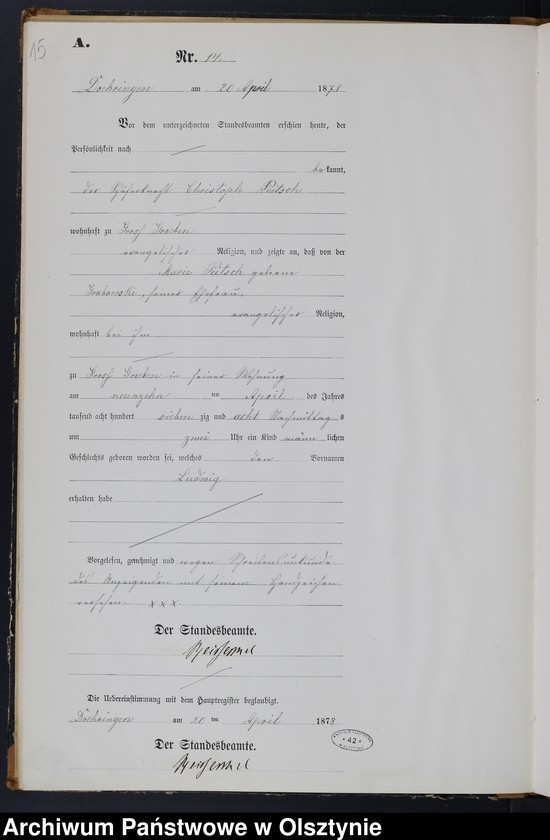 15
A.
Nr. 14.
Doehringen am 20 April 1878
Vor dem unterzeichneten Standesbeamten erschien heute, der
Persönlichkeit nach
bekannt,
der Christoph Peitsch
wohnhaft zu Gross Groeben
evangelischer Religion, und zeigte an, daß von der
Marie Peitsch geborene
Grabowski, seiner Ehefrau,
evangelischer Religion,
wohnhaft bei ihm
zu Gross Groeben in seiner Wohnung
am neunzehn ten April des Jahres
tausend acht hundert sieben zig und acht Nachmittag s
um zwei Uhr ein Kind männ lichen
Geschlechts geboren worden sei, welches den Vornamen
Ludwig
erhalten habe
Vorgelesen, genehmigt und wegen Schreibensunkunde
des Anzeigenden mit seinem Handzeichen
versehen x x x
Der Standesbeamte.
Die Uebereinstimmung mit dem Hauptregister beglaubigt.
Doehringen am 20 ten April 1878
Der Standesbeamte.
* 42 *
Archiwum Państwowe w Olsztynie